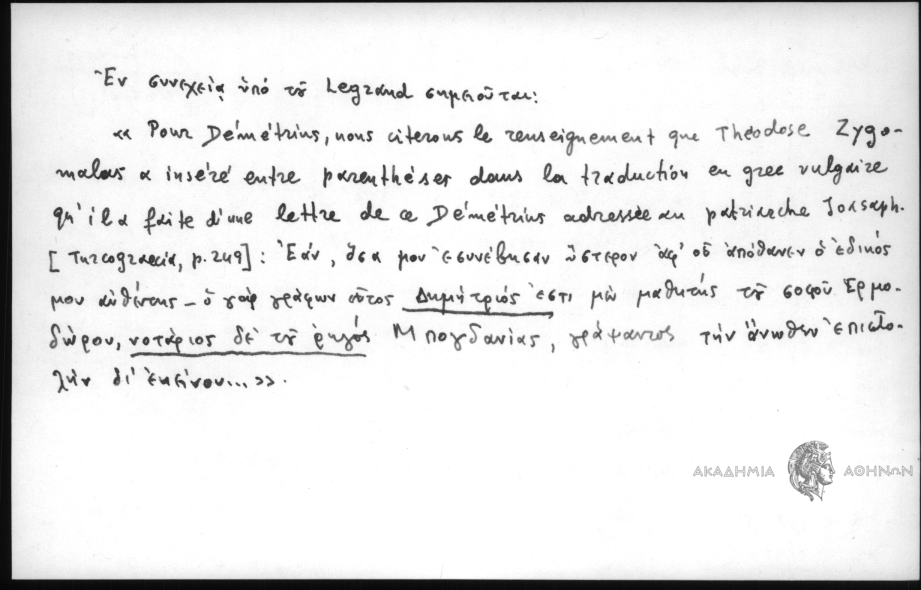 Ἐν συνεχείᾳ ὑπό τοῦ Legrand σημειοῦται:
« Pour Démétrius, nous citerons le renseignement que Théodose Zygo-
malas a inséré entre parenthéses dans la traduction en grec vulgaire
qu'il a faite d'une lettre de ce Démétrius adressée au patriarche Joasaph.
[Turcograecia, p. 249]: Ἐάν, ὅσα μου ἐσυνέβησαν ὕστερον ἀφ' οὗ ἀπόθανεν ὁ ἐδικός
μου αὐθέντης – ὁ γάρ γράφων οὗτος Δημήτριός ἐστι μὲν μαθητής τοῦ σοφοῦ Ἑρμο-
δώρου, νοτάριος δέ τοῦ ῥηγός Μπογδανίας, γράψαντος τήν ἄνωθεν ἐπιστο-
λήν δι' ἐκείνου... ».
ΑΚΑΔΗΜΙΑ ΑΘΗΝΩΝ